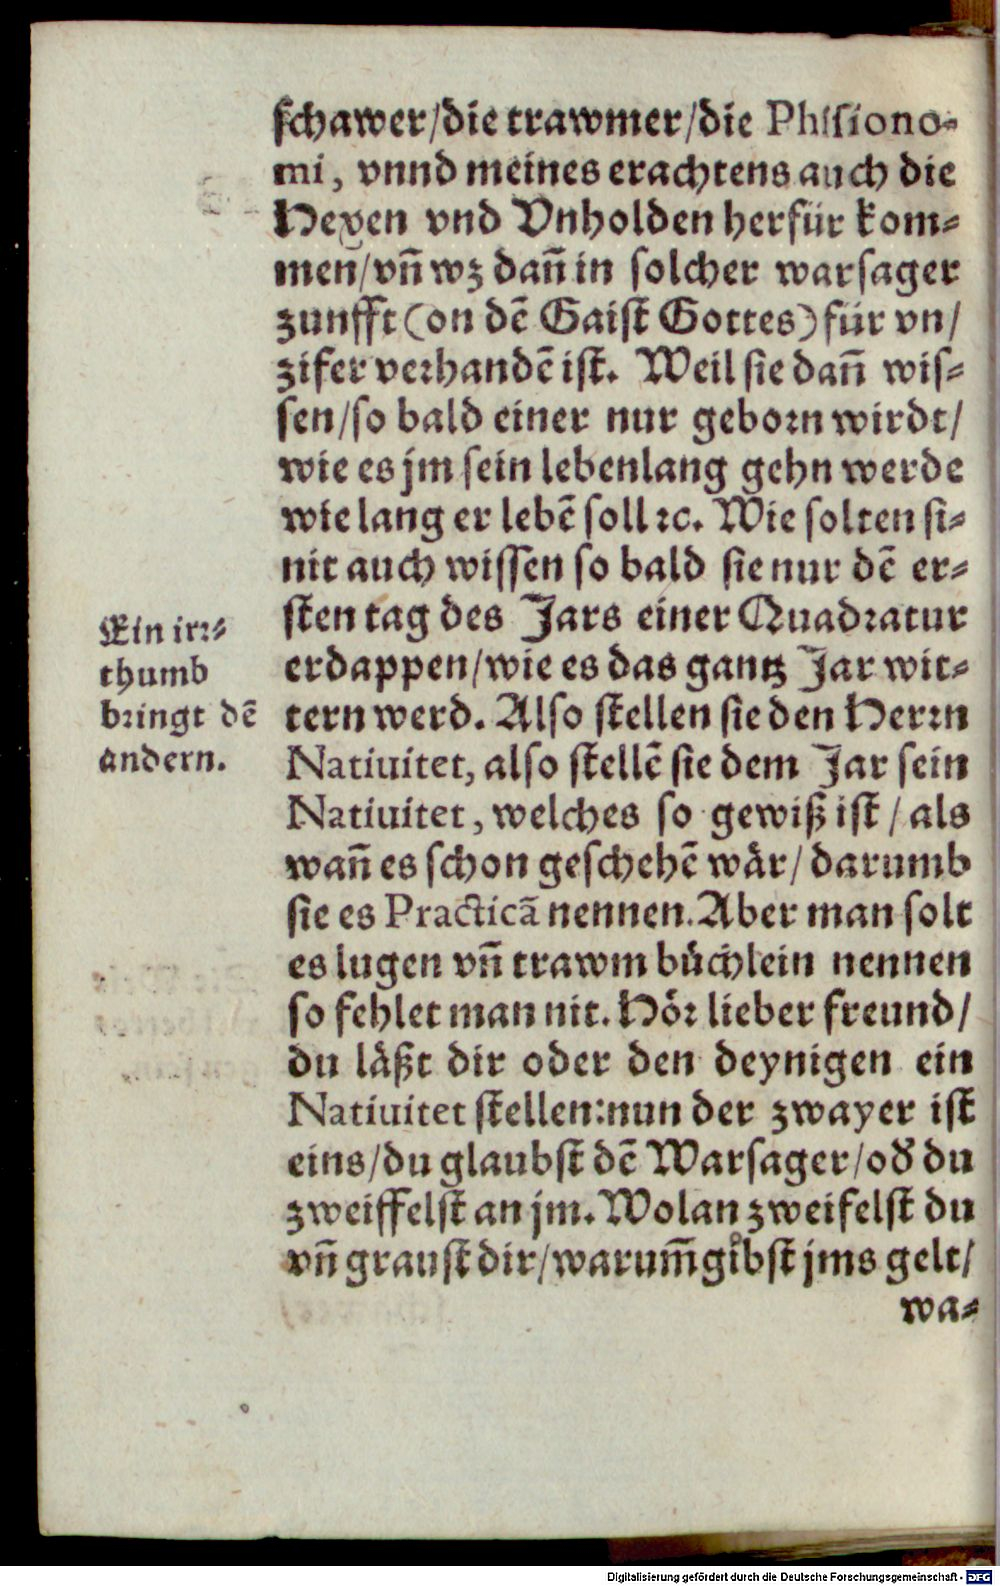 schawer/die trawmer/die Phisiono⸗
mi, vnnd meines erachtens auch die
Hexen vnd Vnholden herfür kom⸗
men/vñ wz dañ in solcher warsager
zunfft (on dẽ Gaist Gottes) für vn/
zifer verhandẽ ist. Weil sie dañ wis⸗
sen/so bald einer nur geborn wirdt/
wie es jm sein lebenlang gehn werde
wie lang er lebẽ soll ꝛc. Wie solten si⸗
nit auch wissen so bald sie nur dẽ er⸗
sten tag des Jars einer Quadratur
erdappen/wie es das gantz Jar wit⸗
tern werd. Also stellen sie den Herrn
Natiuitet, also stellẽ sie dem Jar sein
Natiuitet, welches so gewiß ist / als
wañ es schon geschehẽ wår/ darumb
sie es Practicã nennen. Aber man solt
es lugen vñ trawm bůchlein nennen
so fehlet man nit. Hőr lieber freund/
du låßt dir oder den deynigen ein
Natiuitet stellen: nun der zwayer ist
eins/du glaubst dẽ Warsager/od̕ du
zweiffelst an jm. Wolan zweifelst du
vñ graust dir/warum̃ gibst jms gelt/
wa⸗
Ein irr⸗
thumb
bringt dẽ
andern.
Digitalisierung gefördert durch die Deutsche Forschungsgemeinschaft - DFG